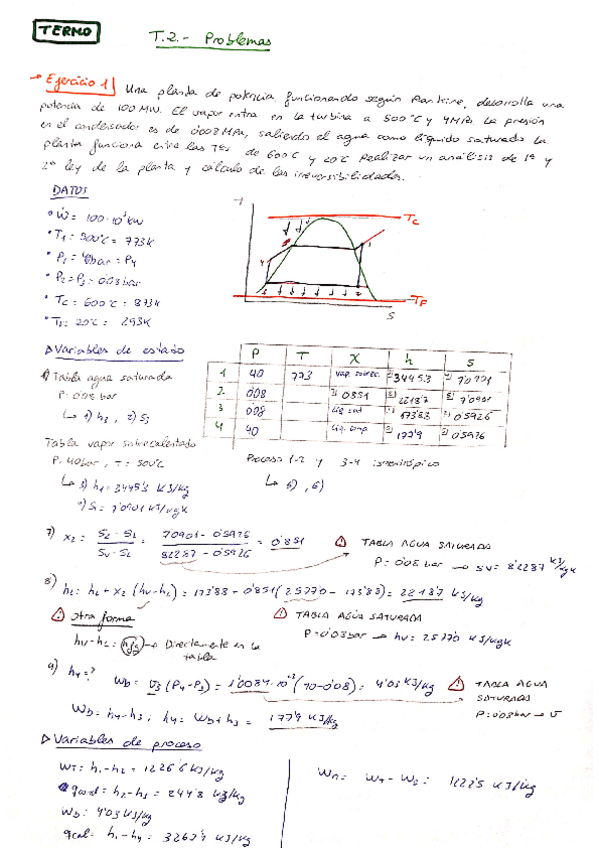 TERMO
T.2.- Problemas
→ Ejercicio 1 Una planta de potencia, funcionando según Rankine, desarrolla una
potencia de 100 MW. El vapor entra en la turbina a 500°C y 4MPa. La presión
en el condensador es de 0'008 MPa, saliendo el agua como líquido saturado. La
planta funciona entre las Tes de 600°C y 20°C. Realizar un análisis de 1ª y
2ª ley de la planta y cálculo de las irreversibilidades.
DATOS
• Ẇ = 100·10³ kW
• T1 = 500°C = 773K
• P1 = 40bar = P4
• P2 = P3 = 0'08 bar
• TC = 600°C = 873K
• TF = 20°C = 293K
T
TC
TF
S
▷ Variables de estado
1) Tabla agua saturada
P: 0'08 bar
↳ 1) h3, 2) S3
Tabla vapor sobrecalentado
P: 40bar, T = 500°C
↳ 3) h1 = 3445'3 KJ/Kg
4) S1 = 7'0901 KJ/KgK
P T X h s
1 40 773 vap. sobrec. 3) 3445'3 4) 7'0901
2 0'08 7) 0'851 8) 2218'7 5) 7'0901
3 0'08 Liq. sat 1) 173'88 2) 0'5926
4 40 Liq. comp. 9) 177'9 6) 0'5926
Proceso 1-2 y 3-4 isentrópico
↳ 5), 6)
7) X2 = S2 - SL / SV - SL = 7'0901 - 0'5926 / 8'2287 - 0'5926 = 0'851
TABLA AGUA SATURADA
P: 0'08 bar → SV = 8'2287 KJ/KgK
8) h2 = hL + X2 (hV - hL) = 173'88 + 0'851 (2577'0 - 173'88) = 2218'7 KJ/Kg
Otra forma
hV - hL = hfg → Directamente en la
tabla
TABLA AGUA SATURADA
P = 0'08 bar → hV = 2577'0 KJ/KgK
9) h4 = ? WB = V3 (P4 - P3) = 1'0084·10⁻³ (40 - 0'08) = 4'03 KJ/Kg
TABLA AGUA
SATURADA
P: 0'08 bar → V
WB = h4 - h3; h4 = WB + h3 = 177'9 KJ/Kg
▷ Variables de proceso
WT = h1 - h2 = 1226'6 KJ/Kg
qcond = h2 - h3 = 2044'8 KJ/Kg
WB = 4'03 KJ/Kg
qcal = h1 - h4 = 3267'4 KJ/Kg
Wn = WT - WB = 1222'5 KJ/Kg